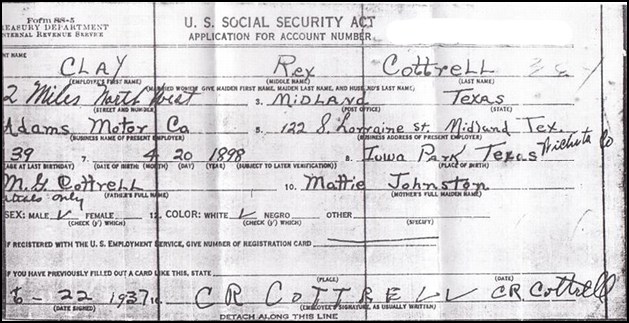 Form SS-5
TREASURY DEPARTMENT
INTERNAL REVENUE SERVICE
U. S. SOCIAL SECURITY ACT
APPLICATION FOR ACCOUNT NUMBER
NT NAME
CLAY Rex Cottrell
(EMPLOYEE'S FIRST NAME) (MIDDLE NAME) (LAST NAME)
(MARRIED WOMEN: GIVE MAIDEN FIRST NAME, MAIDEN LAST NAME, AND HUSBAND'S LAST NAME)
2 Miles North West 3. MIDLAND Texas
(STREET AND NUMBER) (POST OFFICE) (STATE)
Adams Motor Co 5. 122 S. Lorraine St. Midland Tex.
(BUSINESS NAME OF PRESENT EMPLOYER) (BUSINESS ADDRESS OF PRESENT EMPLOYER)
39 7. 4 20 1898 8. Iowa Park Texas Wichita Co
(AGE AT LAST BIRTHDAY) (DATE OF BIRTH: (MONTH) (DAY) (YEAR) (SUBJECT TO LATER VERIFICATION) (PLACE OF BIRTH)
M. G. Cottrell 10. Mattie Johnston
(FATHER'S FULL NAME) (MOTHER'S FULL MAIDEN NAME)
itials only
SEX: MALE ✓ FEMALE 12. COLOR: WHITE ✓ NEGRO OTHER
(CHECK (✓) WHICH) (CHECK (✓) WHICH) (SPECIFY)
IF REGISTERED WITH THE U.S. EMPLOYMENT SERVICE, GIVE NUMBER OF REGISTRATION CARD
IF YOU HAVE PREVIOUSLY FILLED OUT A CARD LIKE THIS, STATE
(PLACE) (DATE)
6-22 1937 CR COTTRELL CR. Cottrell
(DATE SIGNED) (EMPLOYEE'S SIGNATURE, AS USUALLY WRITTEN)
DETACH ALONG THIS LINE